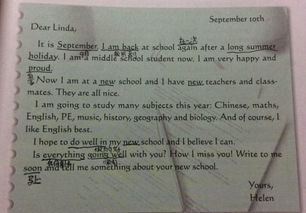 September 10th
Dear Linda,
It is September. I am back at school again after a long summer
holiday. I am a middle school student now. I am very happy and
proud.
Now I am at a new school and I have new teachers and class-
mates. They are all nice.
I am going to study many subjects this year: Chinese, maths,
English, PE, music, history, geography and biology. And of course, I
like English best.
I hope to do well in my new school and I believe I can.
Is everything going well with you? How I miss you! Write to me
soon and tell me something about your new school.
马上
Yours,
Helen